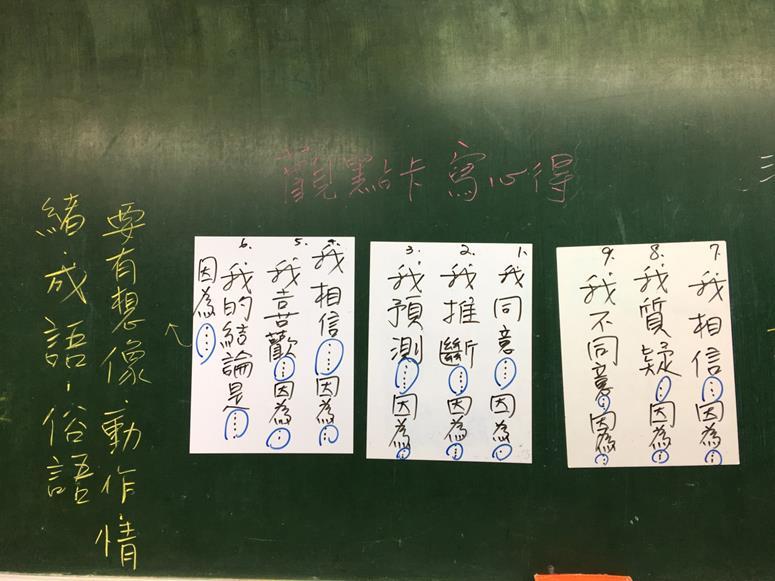 觀點卡寫心得
1. 我同意……因為…
2. 我推斷……因為…
3. 我預測……因為…
4. 我相信……因為…
5. 我喜歡…因為…
6. 我的結論是……
因為……
7. 我相信…因為…
8. 我質疑…因為…
9. 我不同意…因為…
要有想像、動作情
緒、成語、俗語